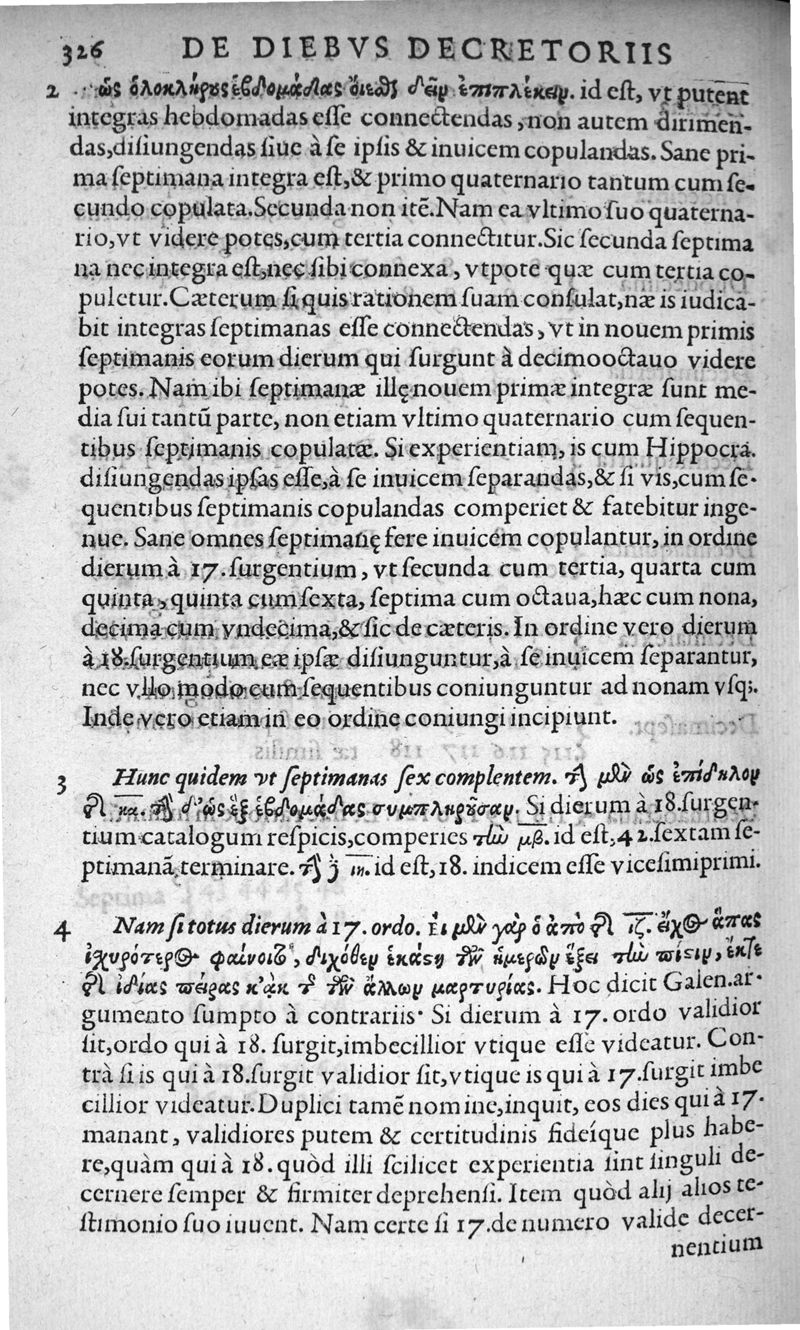 326 DE DIEBVS DECRETORIIS
2 ὡς ὁλοκλήρους ἑβδομάδας οἴεσθαι δεῖν ἐπιπλέκειν. id eſt, vt putent
integras hebdomadas eſſe connectendas, non autem dirimen-
das,diſiungendas ſiue à ſe ipſis & inuicem copulandas. Sane pri-
ma ſeptimana integra eſt,& primo quaternario tantum cum ſe-
cundo copulata.Secunda non itē.Nam ea vltimo ſuo quaterna-
rio,vt videre potes,cum tertia connectitur.Sic ſecunda ſeptima
na nec integra eſt,nec ſibi connexa, vtpote quæ cum tertia co-
puletur.Cæterum ſi quis rationem ſuam conſulat,næ is iudica-
bit integras ſeptimanas eſſe connectendas, vt in nouem primis
ſeptimanis eorum dierum qui ſurgunt à decimooctauo videre
potes. Nam ibi ſeptimanæ illę nouem primæ integræ ſunt me-
dia ſui tantū parte, non etiam vltimo quaternario cum ſequen-
tibus ſeptimanis copulatæ. Si experientiam, is cum Hippocra.
diſiungendas ipſas eſſe,à ſe inuicem ſeparandas,& ſi vis,cum ſe-
quentibus ſeptimanis copulandas comperiet & fatebitur inge-
nue. Sane omnes ſeptimanę fere inuicem copulantur, in ordine
dierum à 17. ſurgentium, vt ſecunda cum tertia, quarta cum
quinta, quinta cum ſexta, ſeptima cum octaua,hæc cum nona,
decima cum vndecima,& ſic de cæteris. In ordine vero dierum
à 18. ſurgentium eæ ipſæ diſiunguntur,à ſe inuicem ſeparantur,
nec vllo modo cum ſequentibus coniunguntur ad nonam vſq;.
Inde vero etiam in eo ordine coniungi incipiunt.
3 Hunc quidem vt ſeptimanas ſex complentem. τὴν μὲν ὡς ἐπίδηλον
τῆς κα. τὴν δ' ὡς ἓξ ἑβδομάδας συμπληροῦσαν. Si dierum à 18. ſurgen-
tium catalogum reſpicis,comperies τὴν μβ. id eſt, 42. ſextam ſe-
ptimanā terminare. τὴν ἢ ιη. id eſt, 18. indicem eſſe viceſimiprimi.
4 Nam ſi totus dierum à 17. ordo. Εἰ μὲν γὰρ ὁ ἀπὸ τῆς ιζ. στίχος ἅπας
ἰσχυρότερος φαίνοιτο, διχόθεν ἑκάστη τῶν ἡμερῶν ἕξει τὴν πίστιν, ἔκ τε
τῆς ἰδίας πείρας κἀκ τῆς τῶν ἄλλων μαρτυρίας. Hoc dicit Galen.ar-
gumento ſumpto à contrariis. Si dierum à 17. ordo validior
ſit,ordo qui à 18. ſurgit,imbecillior vtique eſſe videatur. Con-
trà ſi is qui à 18.ſurgit validior ſit,vtique is qui à 17.ſurgit imbe
cillior videatur. Duplici tamē nomine,inquit, eos dies qui à 17.
manant, validiores putem & certitudinis fideíque plus habe-
re,quàm qui à 18. quòd illi ſcilicet experientia ſint ſinguli de-
cernere ſemper & firmiter deprehenſi. Item quòd alij alios te-
ſtimonio ſuo iuuent. Nam certe ſi 17. de numero valide decer-
nentium